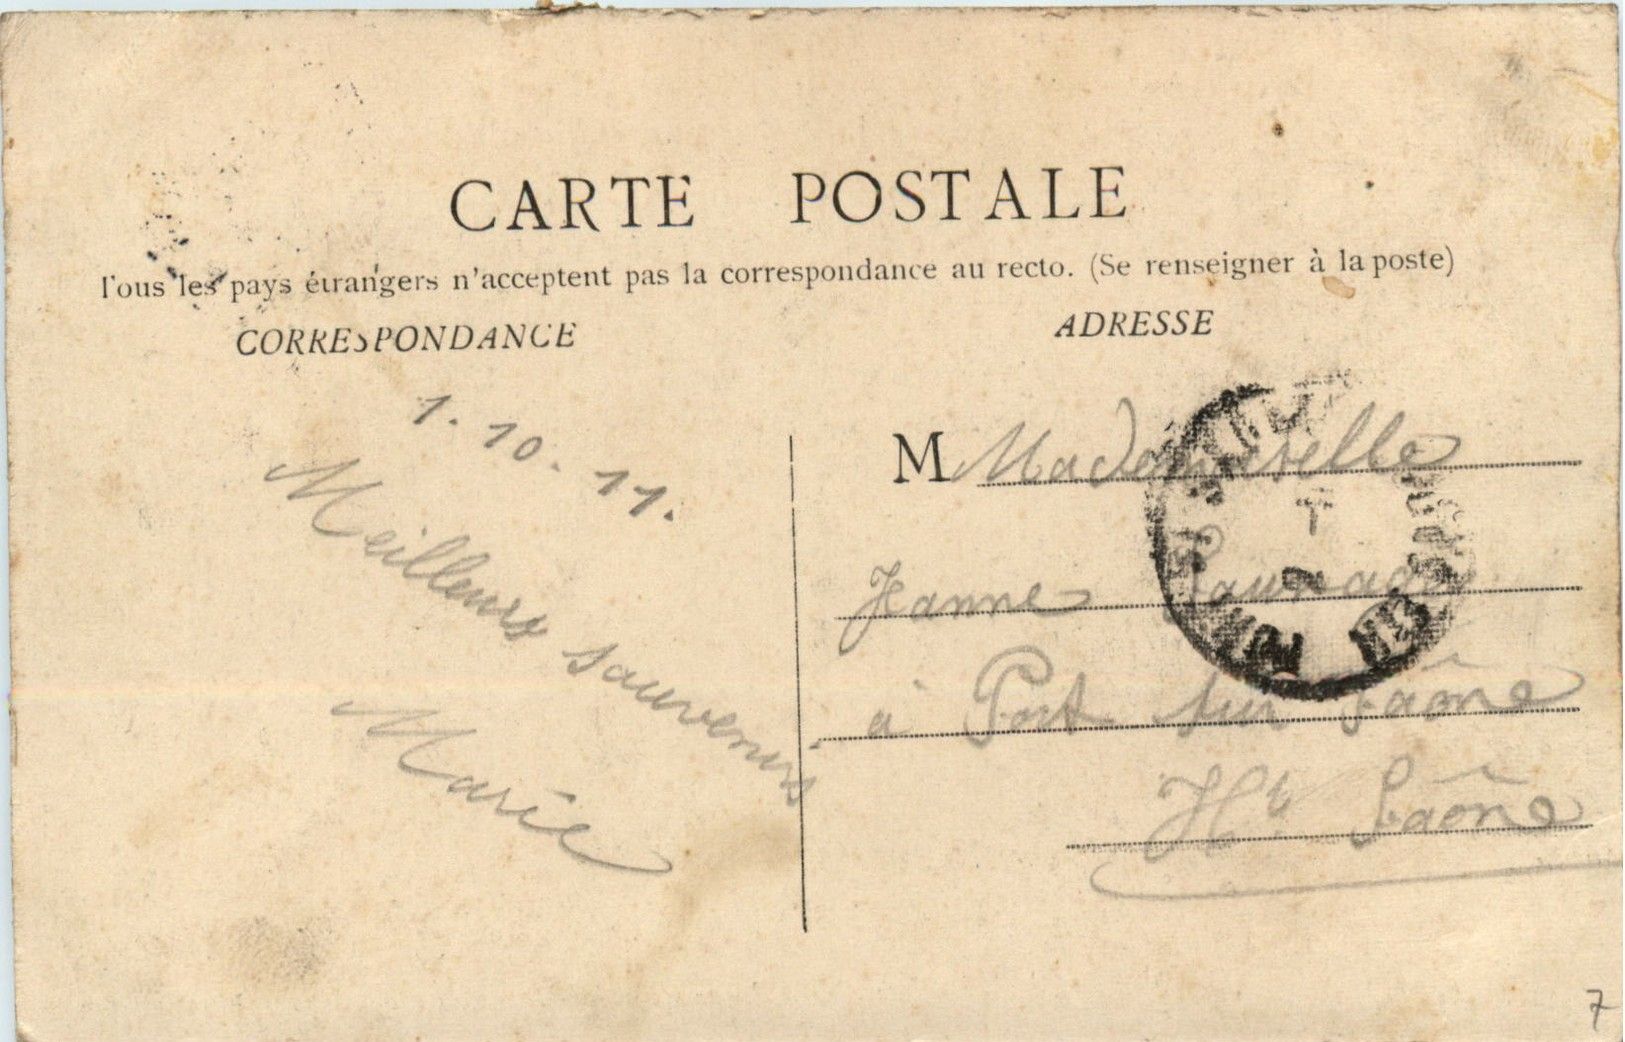 CARTE POSTALE
Tous les pays étrangers n'acceptent pas la correspondance au recto. (Se renseigner à la poste)
CORRESPONDANCE
1. 10. 11.
Meilleurs souvenirs
Marie
ADRESSE
M Mademoiselle
Jeanne
à Port sur Saône
Hte Saône
7